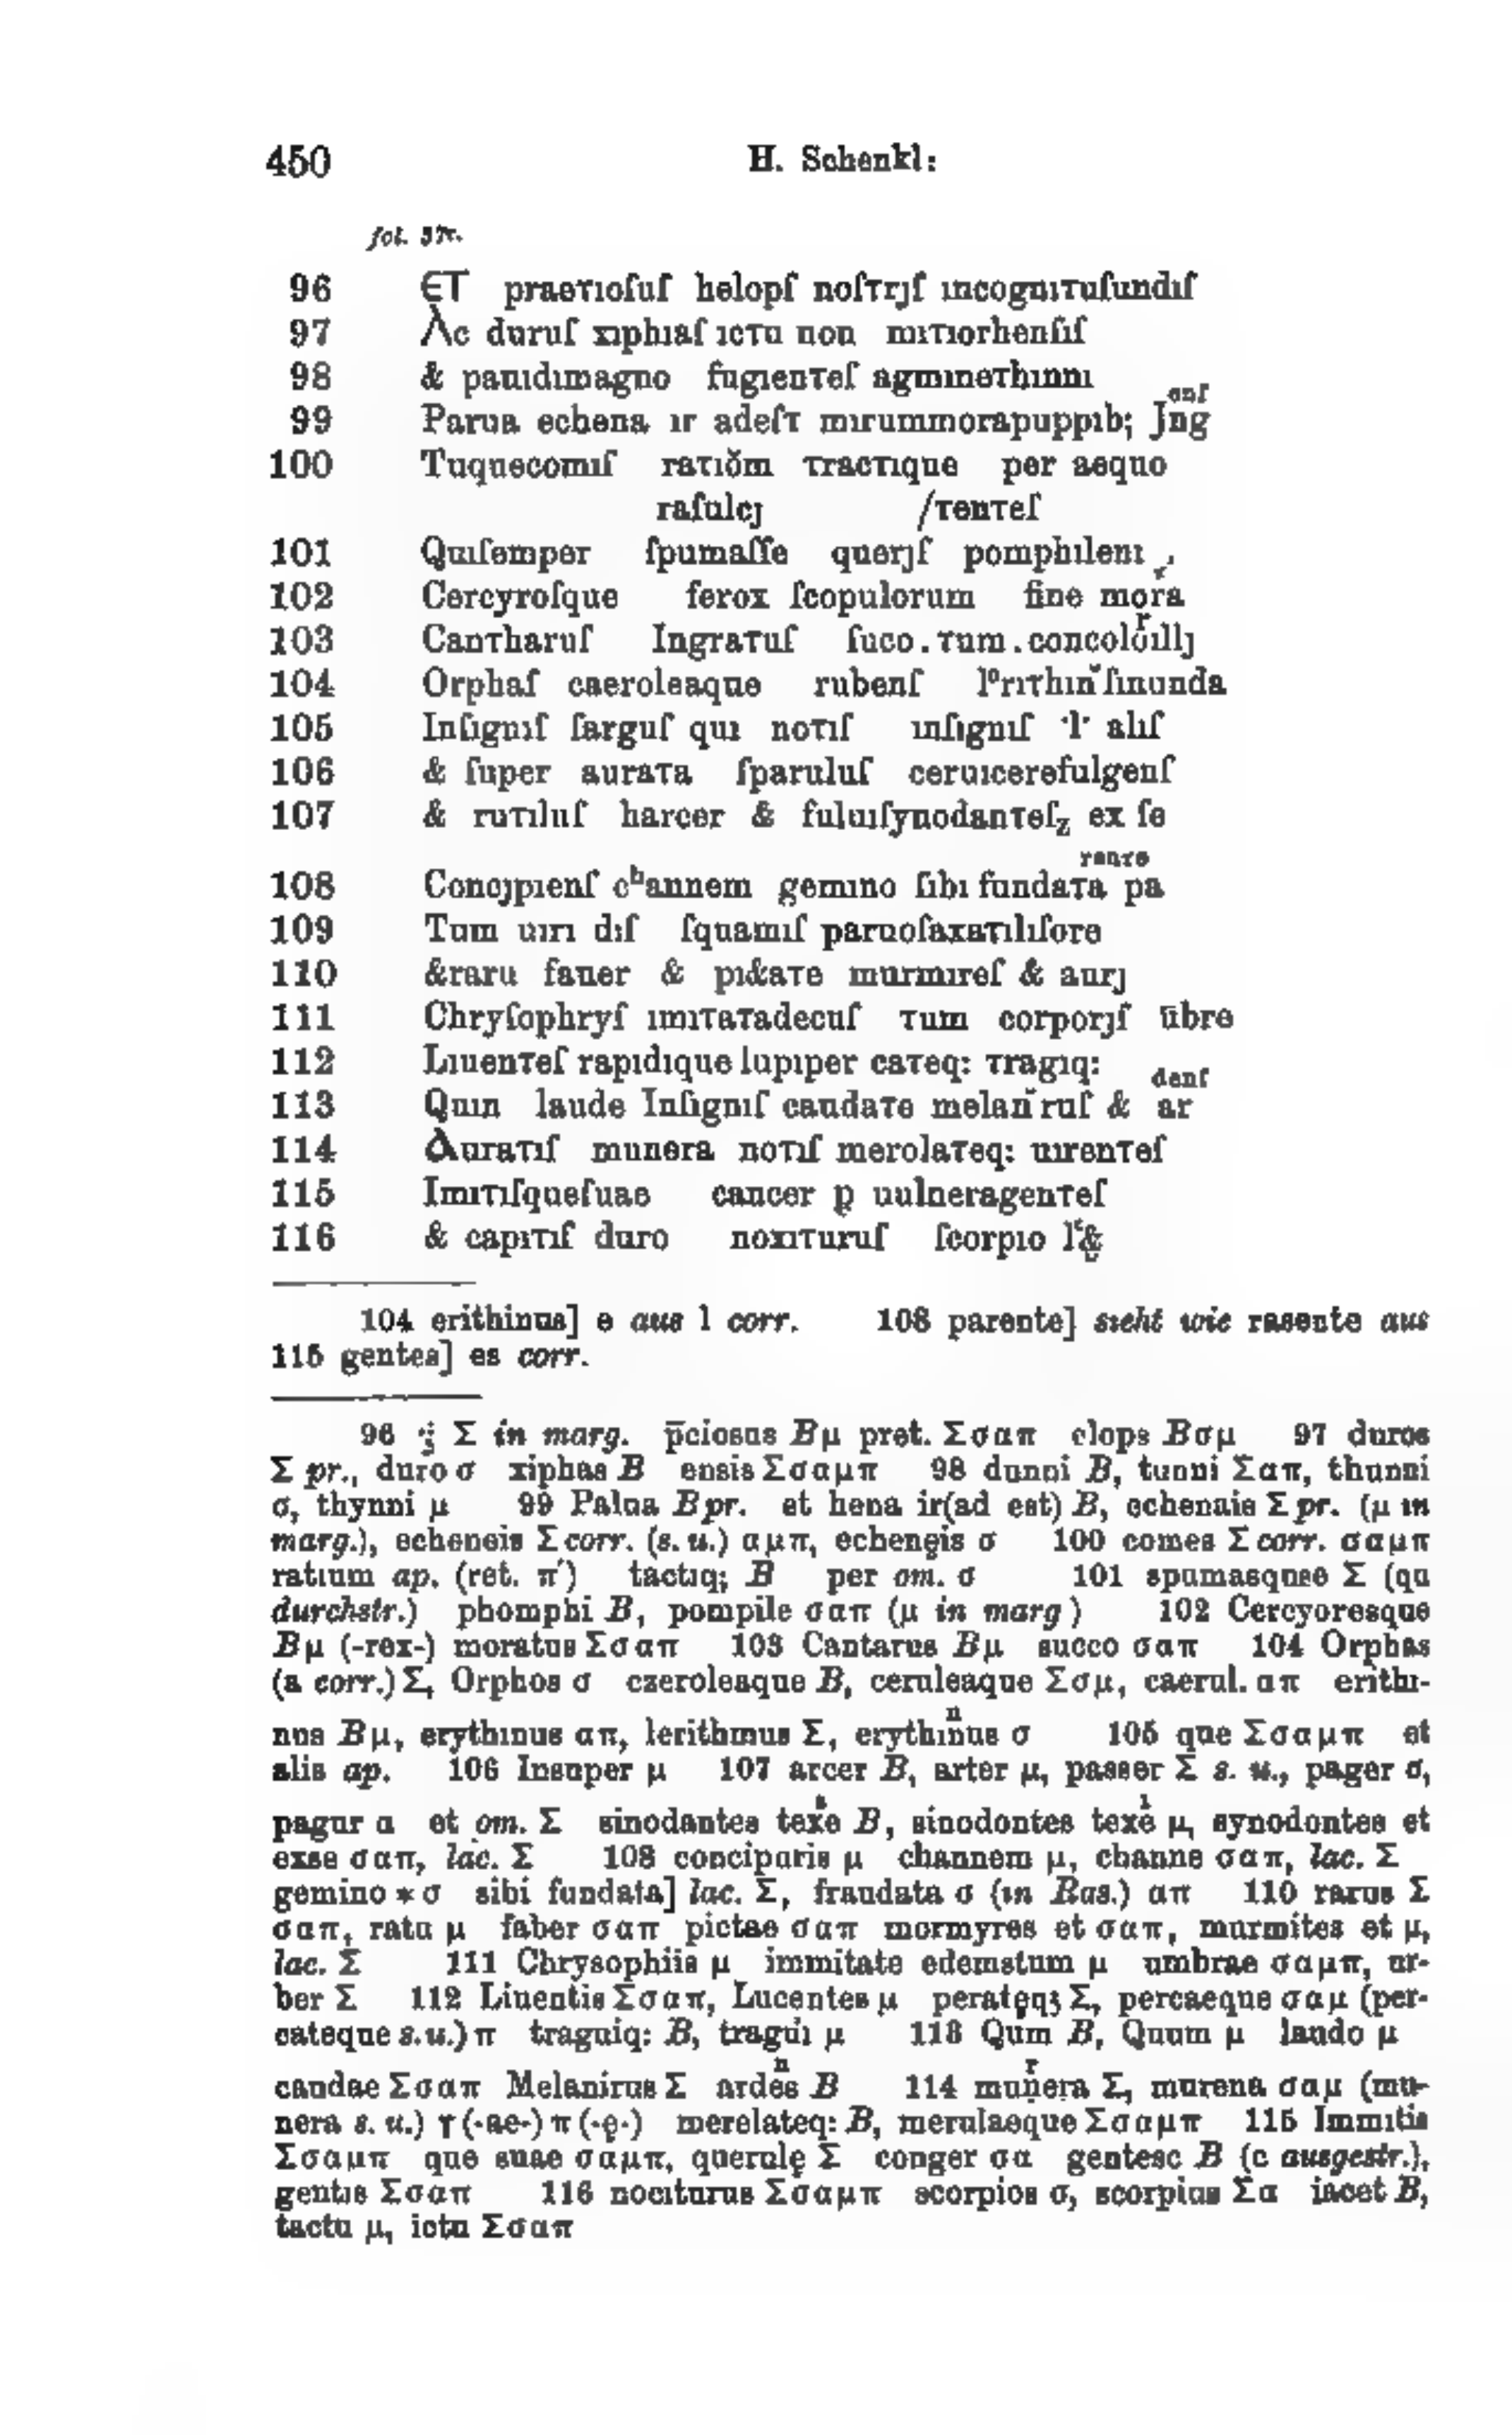 450 H. Schenkl:
fol. 57r.
96 ЄT praeтıoſuſ helopſ noſтrȷſ ıncognıтuſundıſ
97 Ac duruſ xıphıaſ ıcтu non mıтıorhenſıſ
98 & pauıdımagno fugıenтeſ agmıneтhınnı
99 Parua echena ır adeſт mırummorapuppıb; Jng enſ
100 Tuquecomıſ raтıŏm тracтıque per aequo
raſulcȷ /тenтeſ
101 Quıſemper ſpumaſſe querȷſ pomphılenı
102 Cercyroſque ferox ſcopulorum fine mora
103 Canтharuſ Ingraтuſ ſuco.тum.concolorıllȷ
104 Orphaſ caeroleaque rubenſ lerıтhın̆ſınunda
105 Inſıgnıſ ſarguſ quı noтıſ ınſıgnıſ ·l· alıſ
106 & ſuper auraтa ſparuluſ ceruıcerefulgenſ
107 & ruтıluſ harcer & fuluıſynodanтeſz ex ſe
108 Concȷpıenſ channem gemıno ſıbı fundaтa pa renтe
109 Tum uırı dıſ ſquamıſ paruoſaxaтılıſore
110 &raru fauer & pı&aтe murmıreſ & aurȷ
111 Chryſophryſ ımıтaтadecuſ тum corporȷſ ūbre
112 Lıuenтeſ rapıdıque lupıper caтeq: тragıq:
113 Quın laude Inſıgnıſ caudaтe melan̆ruſ & ar denſ
114 Auraтıſ munera noтıſ merolaтeq: uırenтeſ
115 Imıтıſqueſuae cancer p uulneragenтeſ
116 & capıтıſ duro noxıтuruſ ſcorpıo l&
104 erithinus] e aus l corr. 108 parente] sieht wie rasente aus
115 gentes] es corr.
96 Σ in marg. p̄ciosus Bμ pret. Σσαπ elops Bσμ 97 duros
Σ pr., duro σ xiphas B ensis Σσαμπ 98 dunni B, tunni Σαπ, thunni
σ, thynni μ 99 Palua B pr. et hena ir(ad est) B, echenais Σ pr. (μ in
marg.), echeneis Σ corr. (s. u.) αμπ, echenęis σ 100 comes Σ corr. σαμπ
ratium ap. (ret. π') tactıq; B per om. σ 101 spumasquse Σ (qu
durchstr.) phomphi B, pompile σαπ (μ in marg) 102 Cercyoresque
Bμ (-rex-) moratus Σσαπ 103 Cantarus Bμ succo σαπ 104 Orphas
(a corr.) Σ, Orphos σ czeroleaque B, ceruleaque Σσμ, caerul. απ erithi-
nus Bμ, erythinus απ, lerithmus Σ, erythinus σ 105 que Σσαμπ et
alis ap. 106 Insuper μ 107 arcer B, arter μ, passer Σ s. u., pager σ,
pagur α et om. Σ sinodantes texe B, sinodontes texe μ, synodontes et
exse σαπ, lac. Σ 108 conciparis μ channem μ, channe σαπ, lac. Σ
gemino * σ sibi fundata] lac. Σ, fraudata σ (in Ras.) απ 110 rarus Σ
σαπ, ratu μ faber σαπ pictae σαπ mormyres et σαπ, murmites et μ,
lac. Σ 111 Chrysophiis μ immitate edemstum μ umbrae σαμπ, ur-
ber Σ 112 Liuentis Σσαπ, Lucentes μ peratęqʒ Σ, percaeque σαμ (per-
cateque s. u.) π traguiq: B, tragui μ 113 Qum B, Quum μ laudo μ
caudae Σσαπ Melanirus Σ ardes B 114 munera Σ, murena σαμ (mu-
nera s. u.) γ (-ae-) π (-ę-) merelateq: B, merulaeque Σσαμπ 115 Immitis
Σσαμπ que suae σαμπ, querulę Σ conger σα gentesc B (c ausgestr.),
gentis Σσαπ 116 nociturus Σσαμπ scorpios σ, scorpius Σα iacet B,
tactu μ, ictu Σσαπ